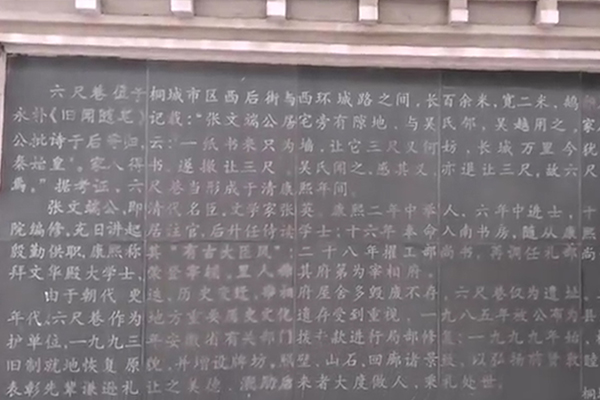 六尺巷位于桐城市区西后街与西环城路之间,长百余米,宽二米,鹅
永朴《旧闻随笔》记载:"张文端公居宅旁有隙地,与吴氏邻,吴越用之。家
公批诗于后寄归,云:一纸书来只为墙,让它三尺又何妨,长城万里今犹
秦始皇"。家人得书,遂撤让三尺,吴氏闻之,感其义,亦退让三尺,故六尺
焉。"据考证,六尺巷当形成于清康熙年间。
张文端公,即清代名臣,文学家张英。康熙二年中举人,六年中进士,十
院编修,充日讲起居注官,后升任侍读学士;十六年奉命入南书房,随从康
殷勤供职,康熙称其"有古大臣风";二十八年擢工部尚书,再调任礼部尚
拜文华殿大学士,里人 其府第为宰相府。
由于朝代更迭,历史变迁,宰相府屋舍多毁废不存,六尺巷仅为遗址。
年代,六尺巷作为地方重要历史文化遗存受到重视,一九八五年被公布为县
护单位,一九九三年安徽省有关部门拨专款进行局部修复;一九九九年始
旧制就地恢复原貌,并增设牌坊,照壁,山石,回廊诸景,以弘扬 贤
表彰先辈谦逊礼让之美德,激励后来者大度做人,秉礼处世。
桐